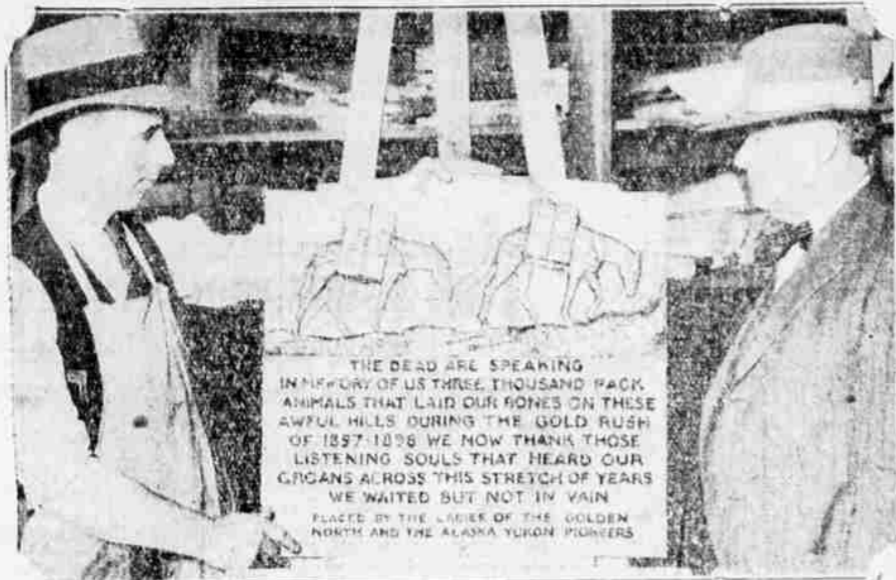 THE DEAD ARE SPEAKING
IN MEMORY OF US THREE THOUSAND PACK
ANIMALS THAT LAID OUR BONES ON THESE
AWFUL HILLS DURING THE GOLD RUSH
OF 1897-1898 WE NOW THANK THOSE
LISTENING SOULS THAT HEARD OUR
GROANS ACROSS THIS STRETCH OF YEARS
WE WAITED BUT NOT IN VAIN
PLACED BY THE LADIES OF THE GOLDEN
NORTH AND THE ALASKA YUKON PIONEERS